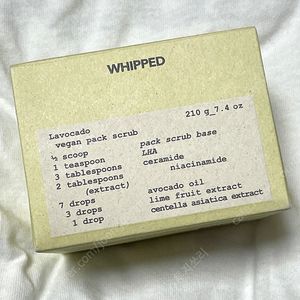 WHIPPED
Lavocado 210 g_7.4 oz
vegan pack scrub
½ scoop pack scrub base
1 teaspoon LHA
3 tablespoons ceramide
2 tablespoons niacinamide
(extract)
7 drops avocado oil
3 drops lime fruit extract
1 drop centella asiatica extract